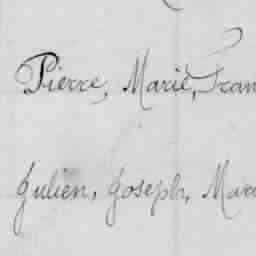 Pierre, Marie, Fran
Julien, Joseph, Mari